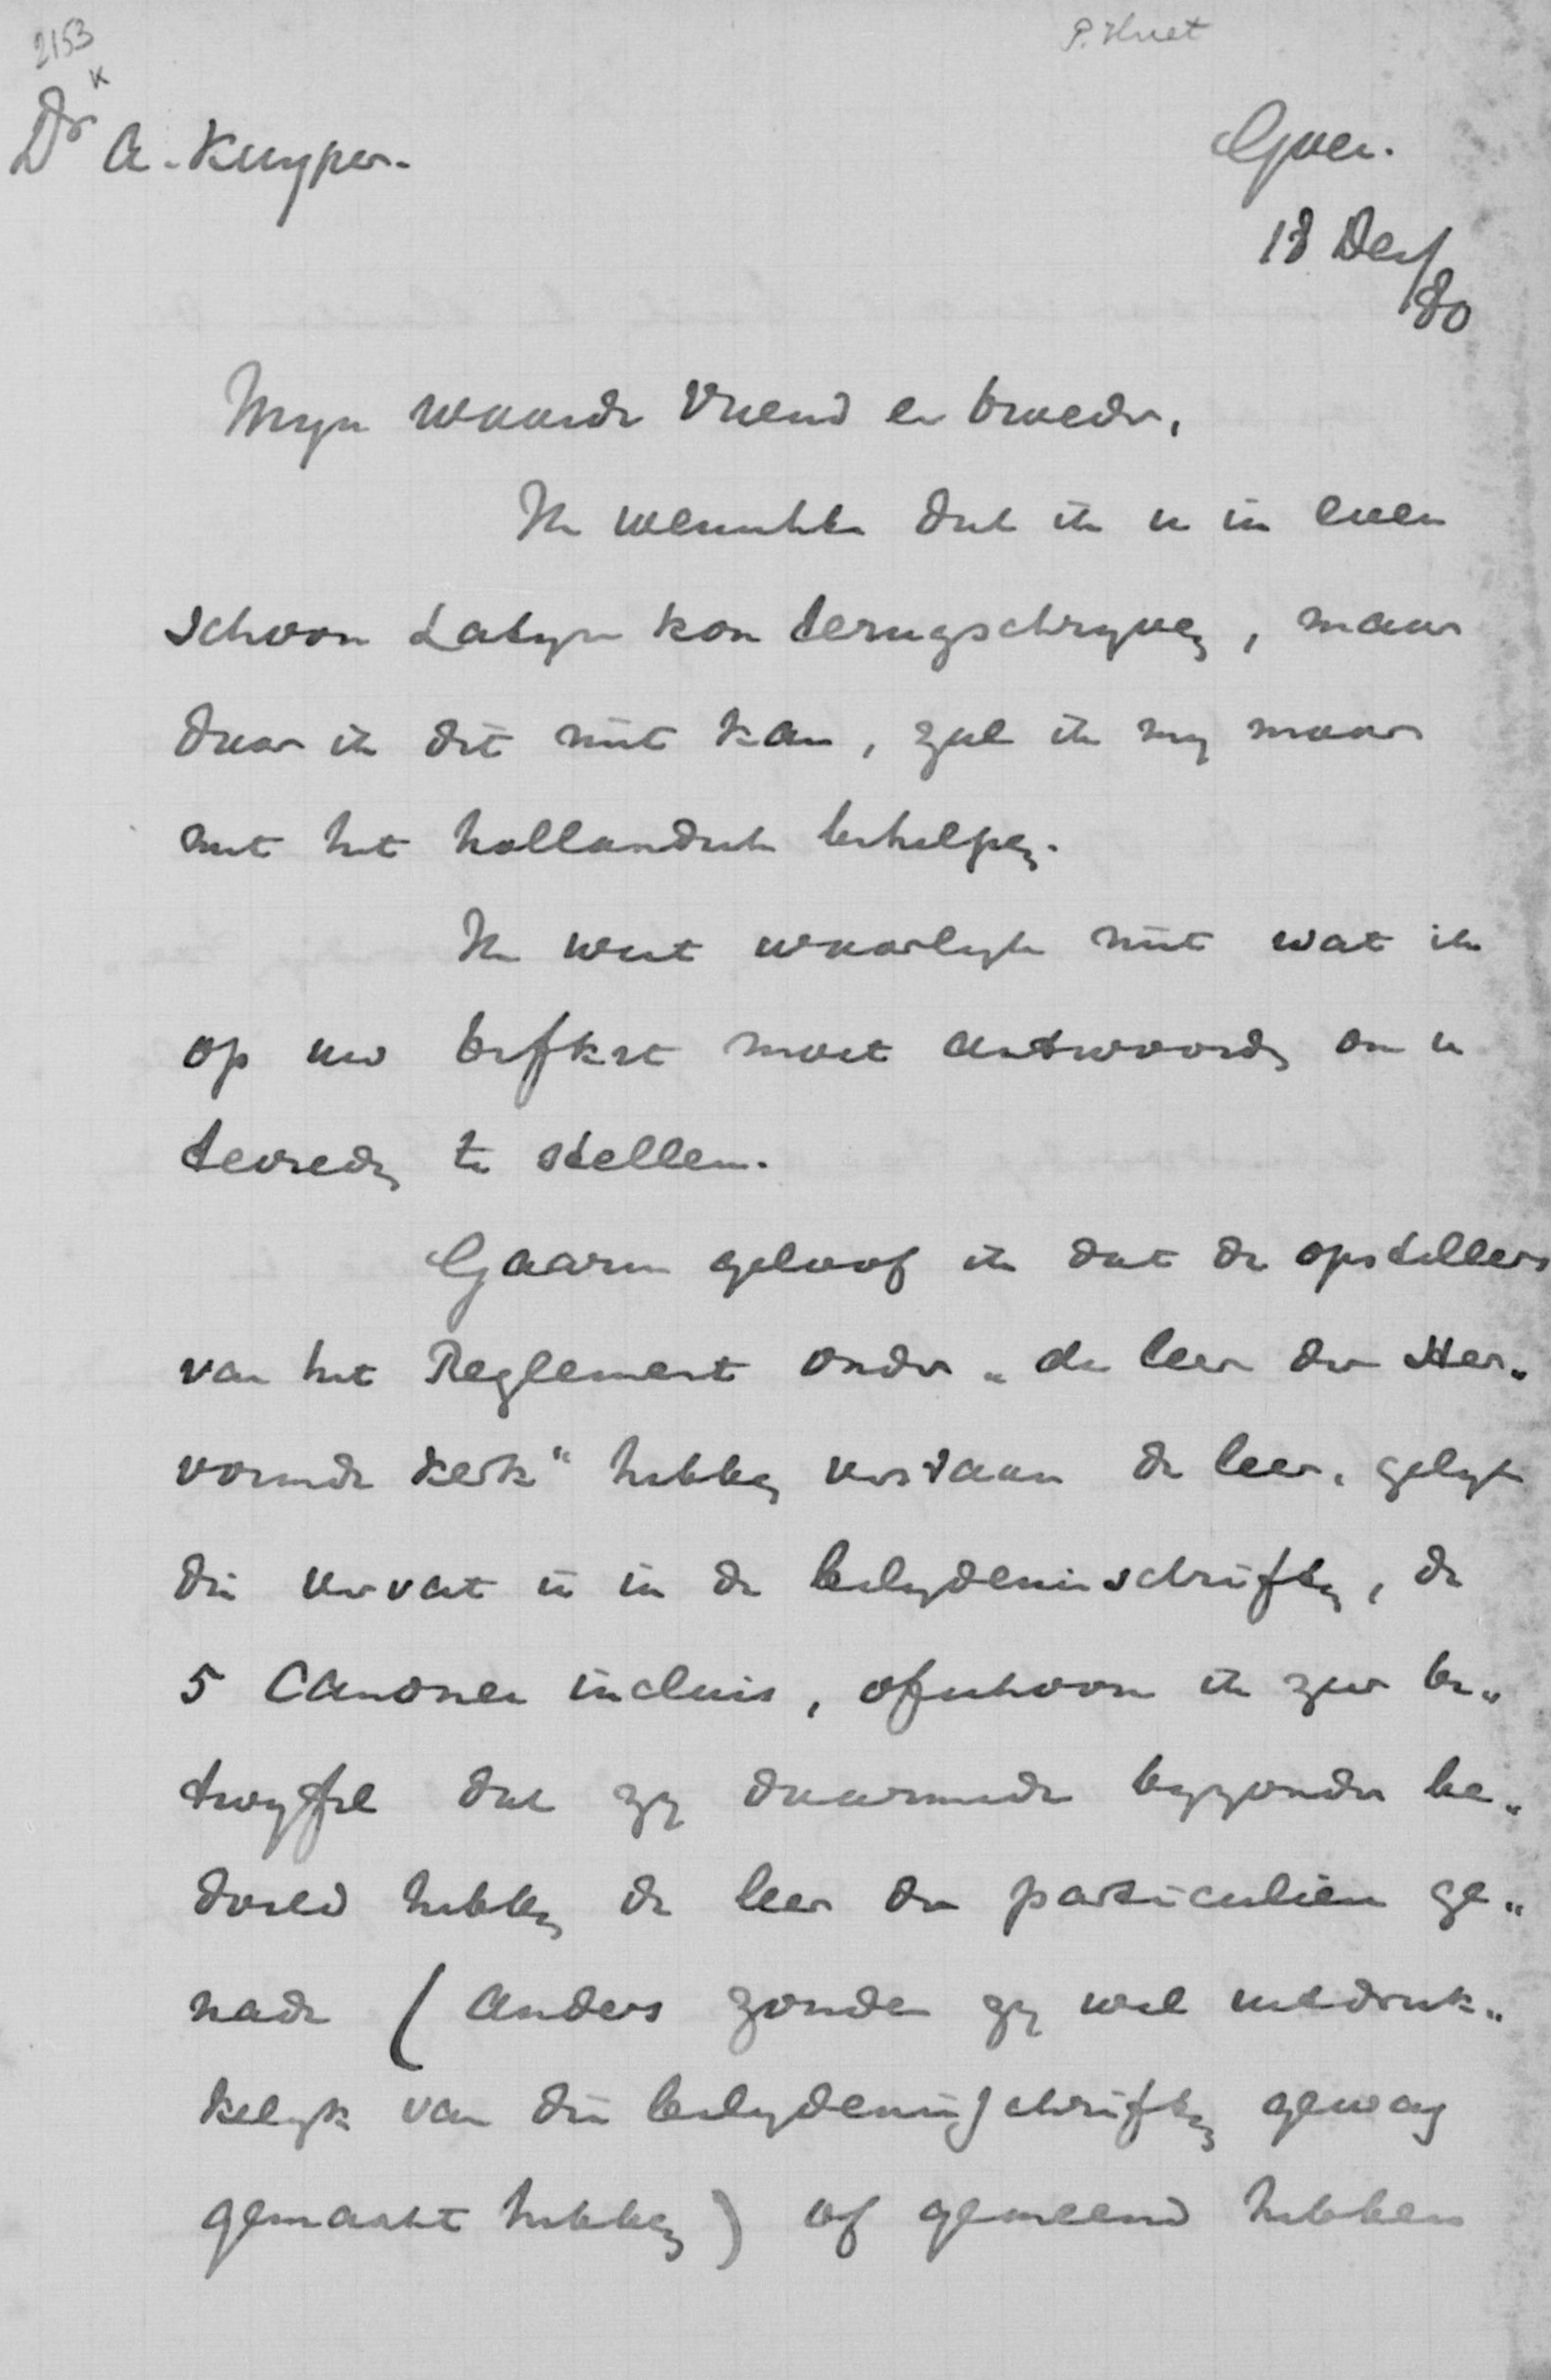 2153
P. Huet
K
Dr A. Kuyper.
Goes.
18 Dec/
80
Myn waarde Vriend en broeder,
Ik wenschte dat ik u in even
schoon Latyn kon terugschryven, maar
daar ik dit niet kan, zal ik my maar
met het hollandsch behelpen.
Ik weet waarlyk niet wat ik
op uw briefkrt moet antwoorden om u
tevreden te stellen.
Gaarne geloof ik dat de opstellers
van het Reglement onder „de leer der Her„
vormde Kerk“ hebben verstaan de leer, gelyk
die vervat is in de belydenisschriften, de
5 Canones incluis, ofschoon ik zeer be„
twyfel dat zy daarmede byzonder be„
doeld hebben de leer der particuliere ge„
nade (anders zouden zy wel uitdruk„
kelyk van die belydenisschriften gewag
gemaakt hebben) of gemeend hebben